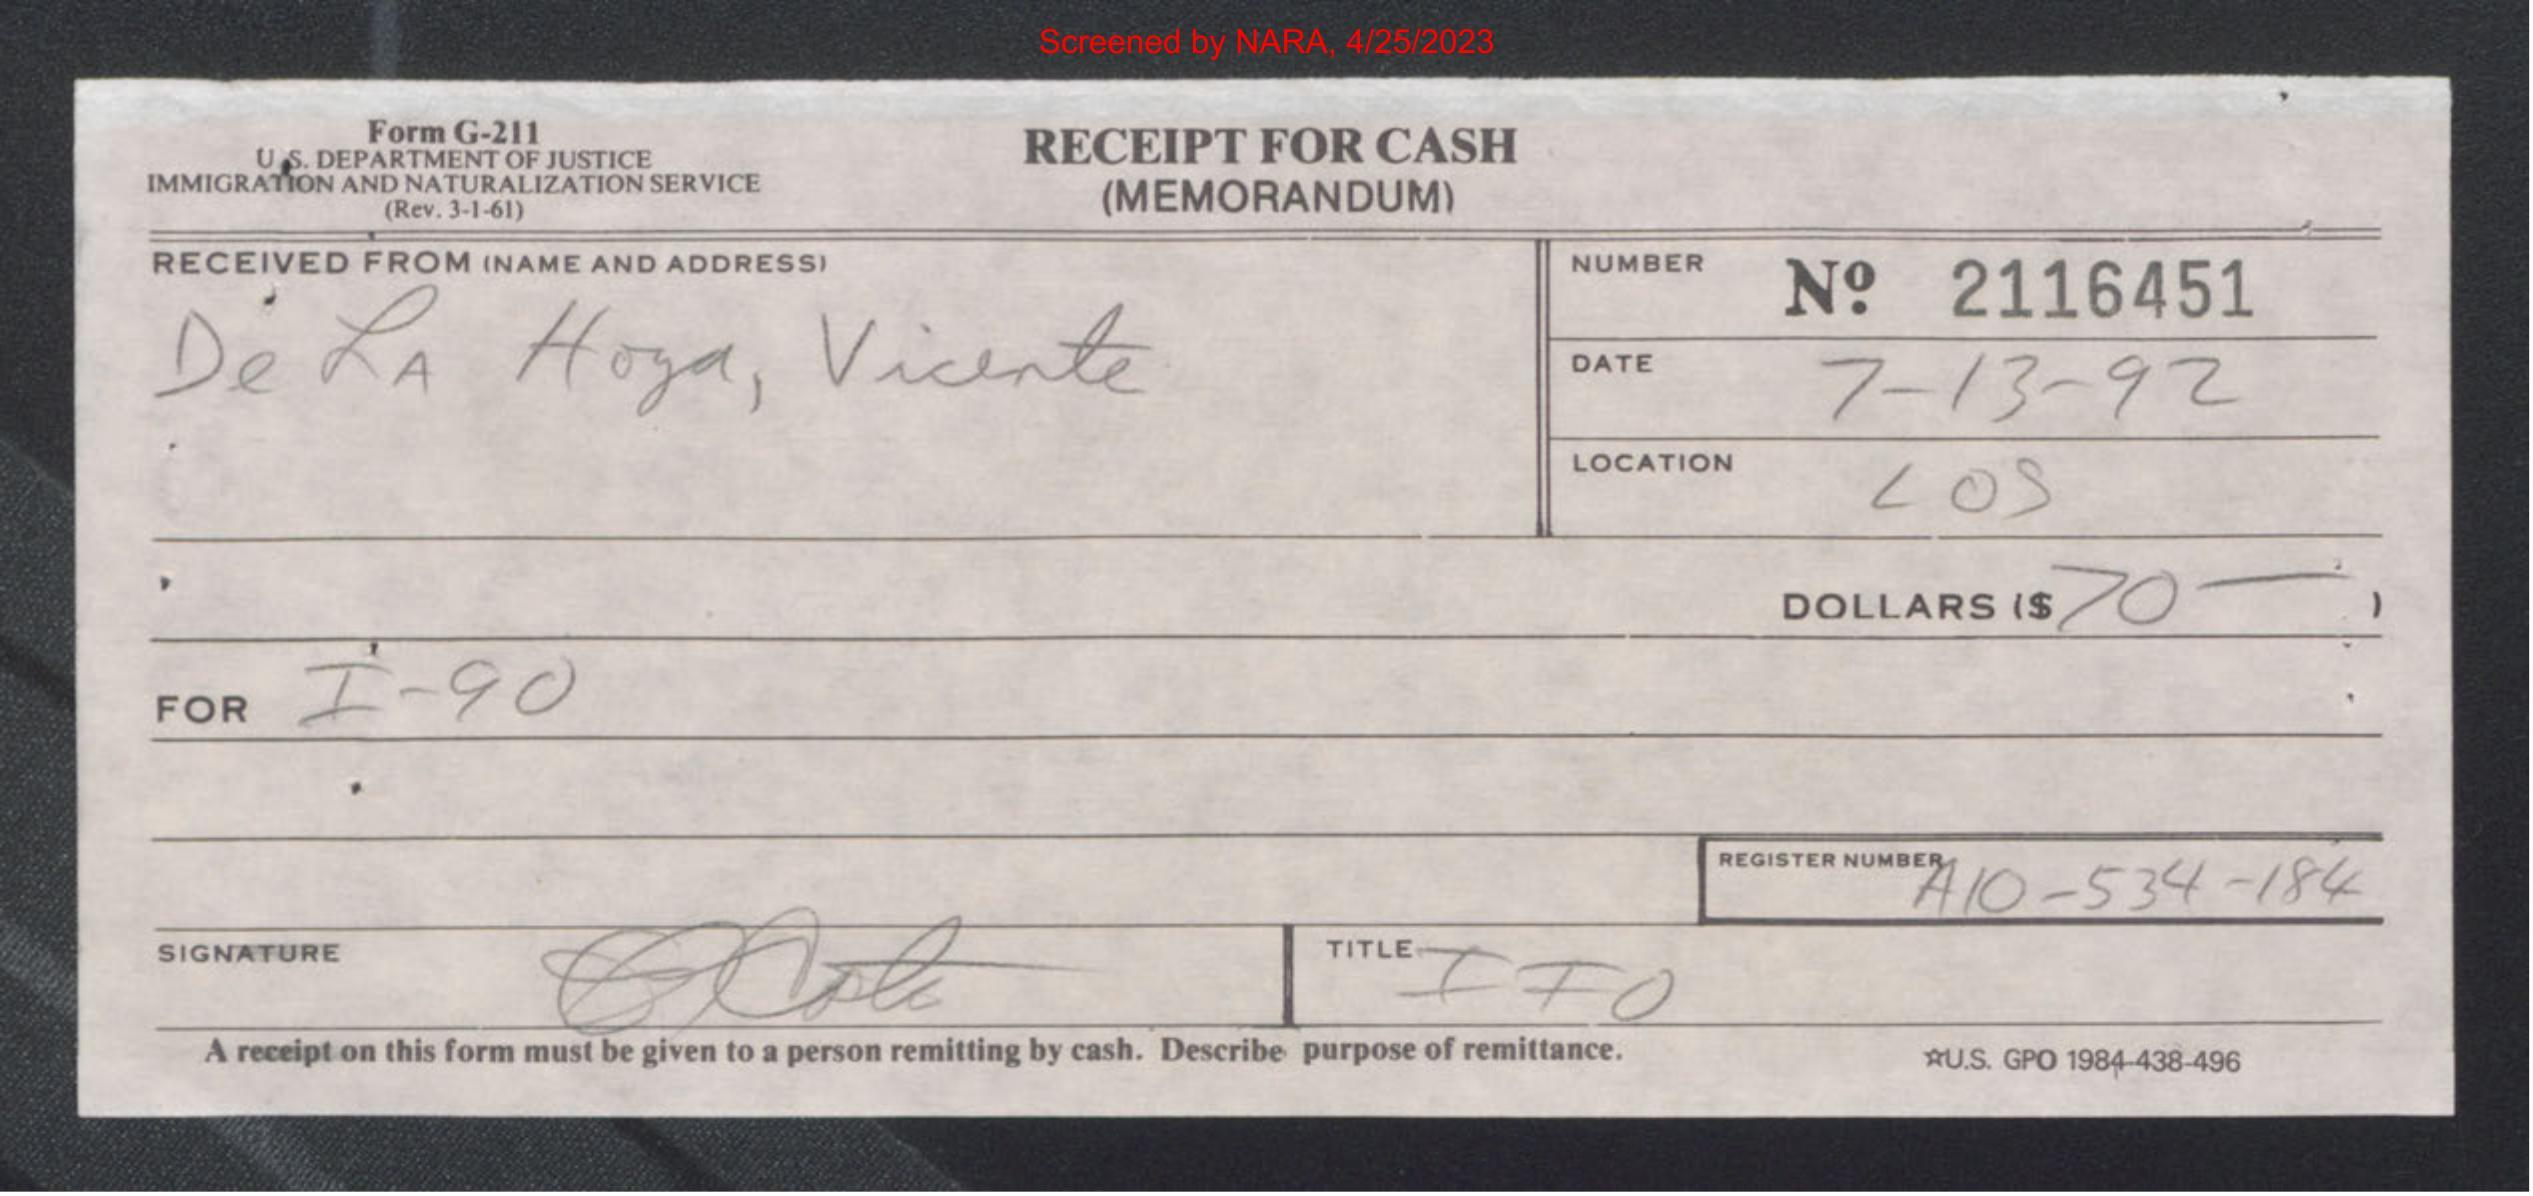 Screened by NARA, 4/25/2023
Form G-211
U.S. DEPARTMENT OF JUSTICE
IMMIGRATION AND NATURALIZATION SERVICE
(Rev. 3-1-61)
RECEIPT FOR CASH
(MEMORANDUM)
RECEIVED FROM (NAME AND ADDRESS)
De LA Hoya, Vicente
NUMBER Nº 2116451
DATE 7-13-92
LOCATION LOS
DOLLARS ($70—)
FOR I-90
REGISTER NUMBER A10-534-184
SIGNATURE
TITLE IIO
A receipt on this form must be given to a person remitting by cash. Describe purpose of remittance.
☆U.S. GPO 1984-438-496